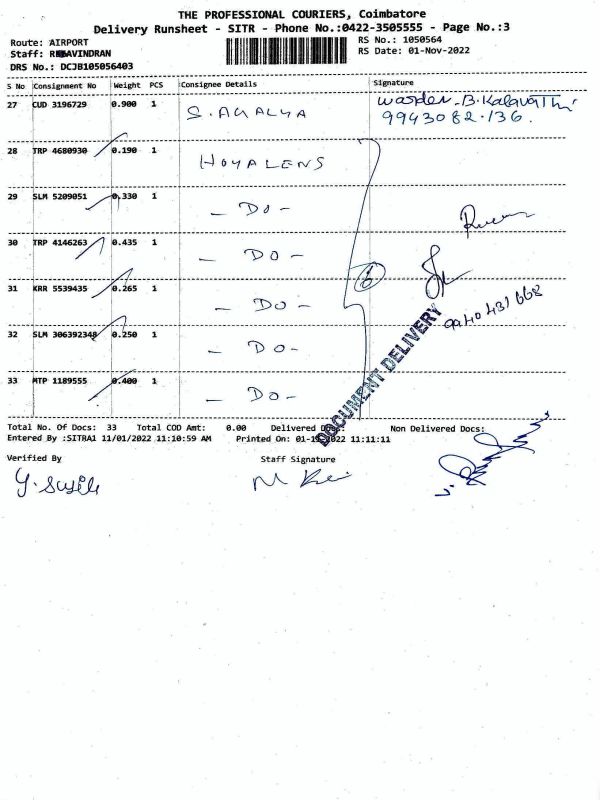 THE PROFESSIONAL COURIERS, Coimbatore
Delivery Runsheet - SITR - Phone No.:0422-3505555 - Page No.:3
Route: AIRPORT RS No.: 1050564
Staff: RAVINDRAN RS Date: 01-Nov-2022
DRS No.: DCJB105056403
S No Consignment No Weight PCS Consignee Details Signature
27 CUD 3196729 0.900 1 S. AGALYA Warden. B. Kalavathi
9943082.136.
28 TRP 4680930 0.190 1 HOYALENS
29 SLM 5209051 0.330 1 - DO -
30 TRP 4146263 0.435 1 - DO -
6
31 KRR 5539435 0.265 1 - DO - 9940431668
32 SLM 306392348 0.250 1 - DO -
DOCUMENT DELIVERY
33 MTP 1189555 0.400 1 - DO -
Total No. Of Docs: 33 Total COD Amt: 0.00 Delivered Docs: Non Delivered Docs:
Entered By :SITRA1 11/01/2022 11:10:59 AM Printed On: 01-11-2022 11:11:11
Verified By Staff Signature